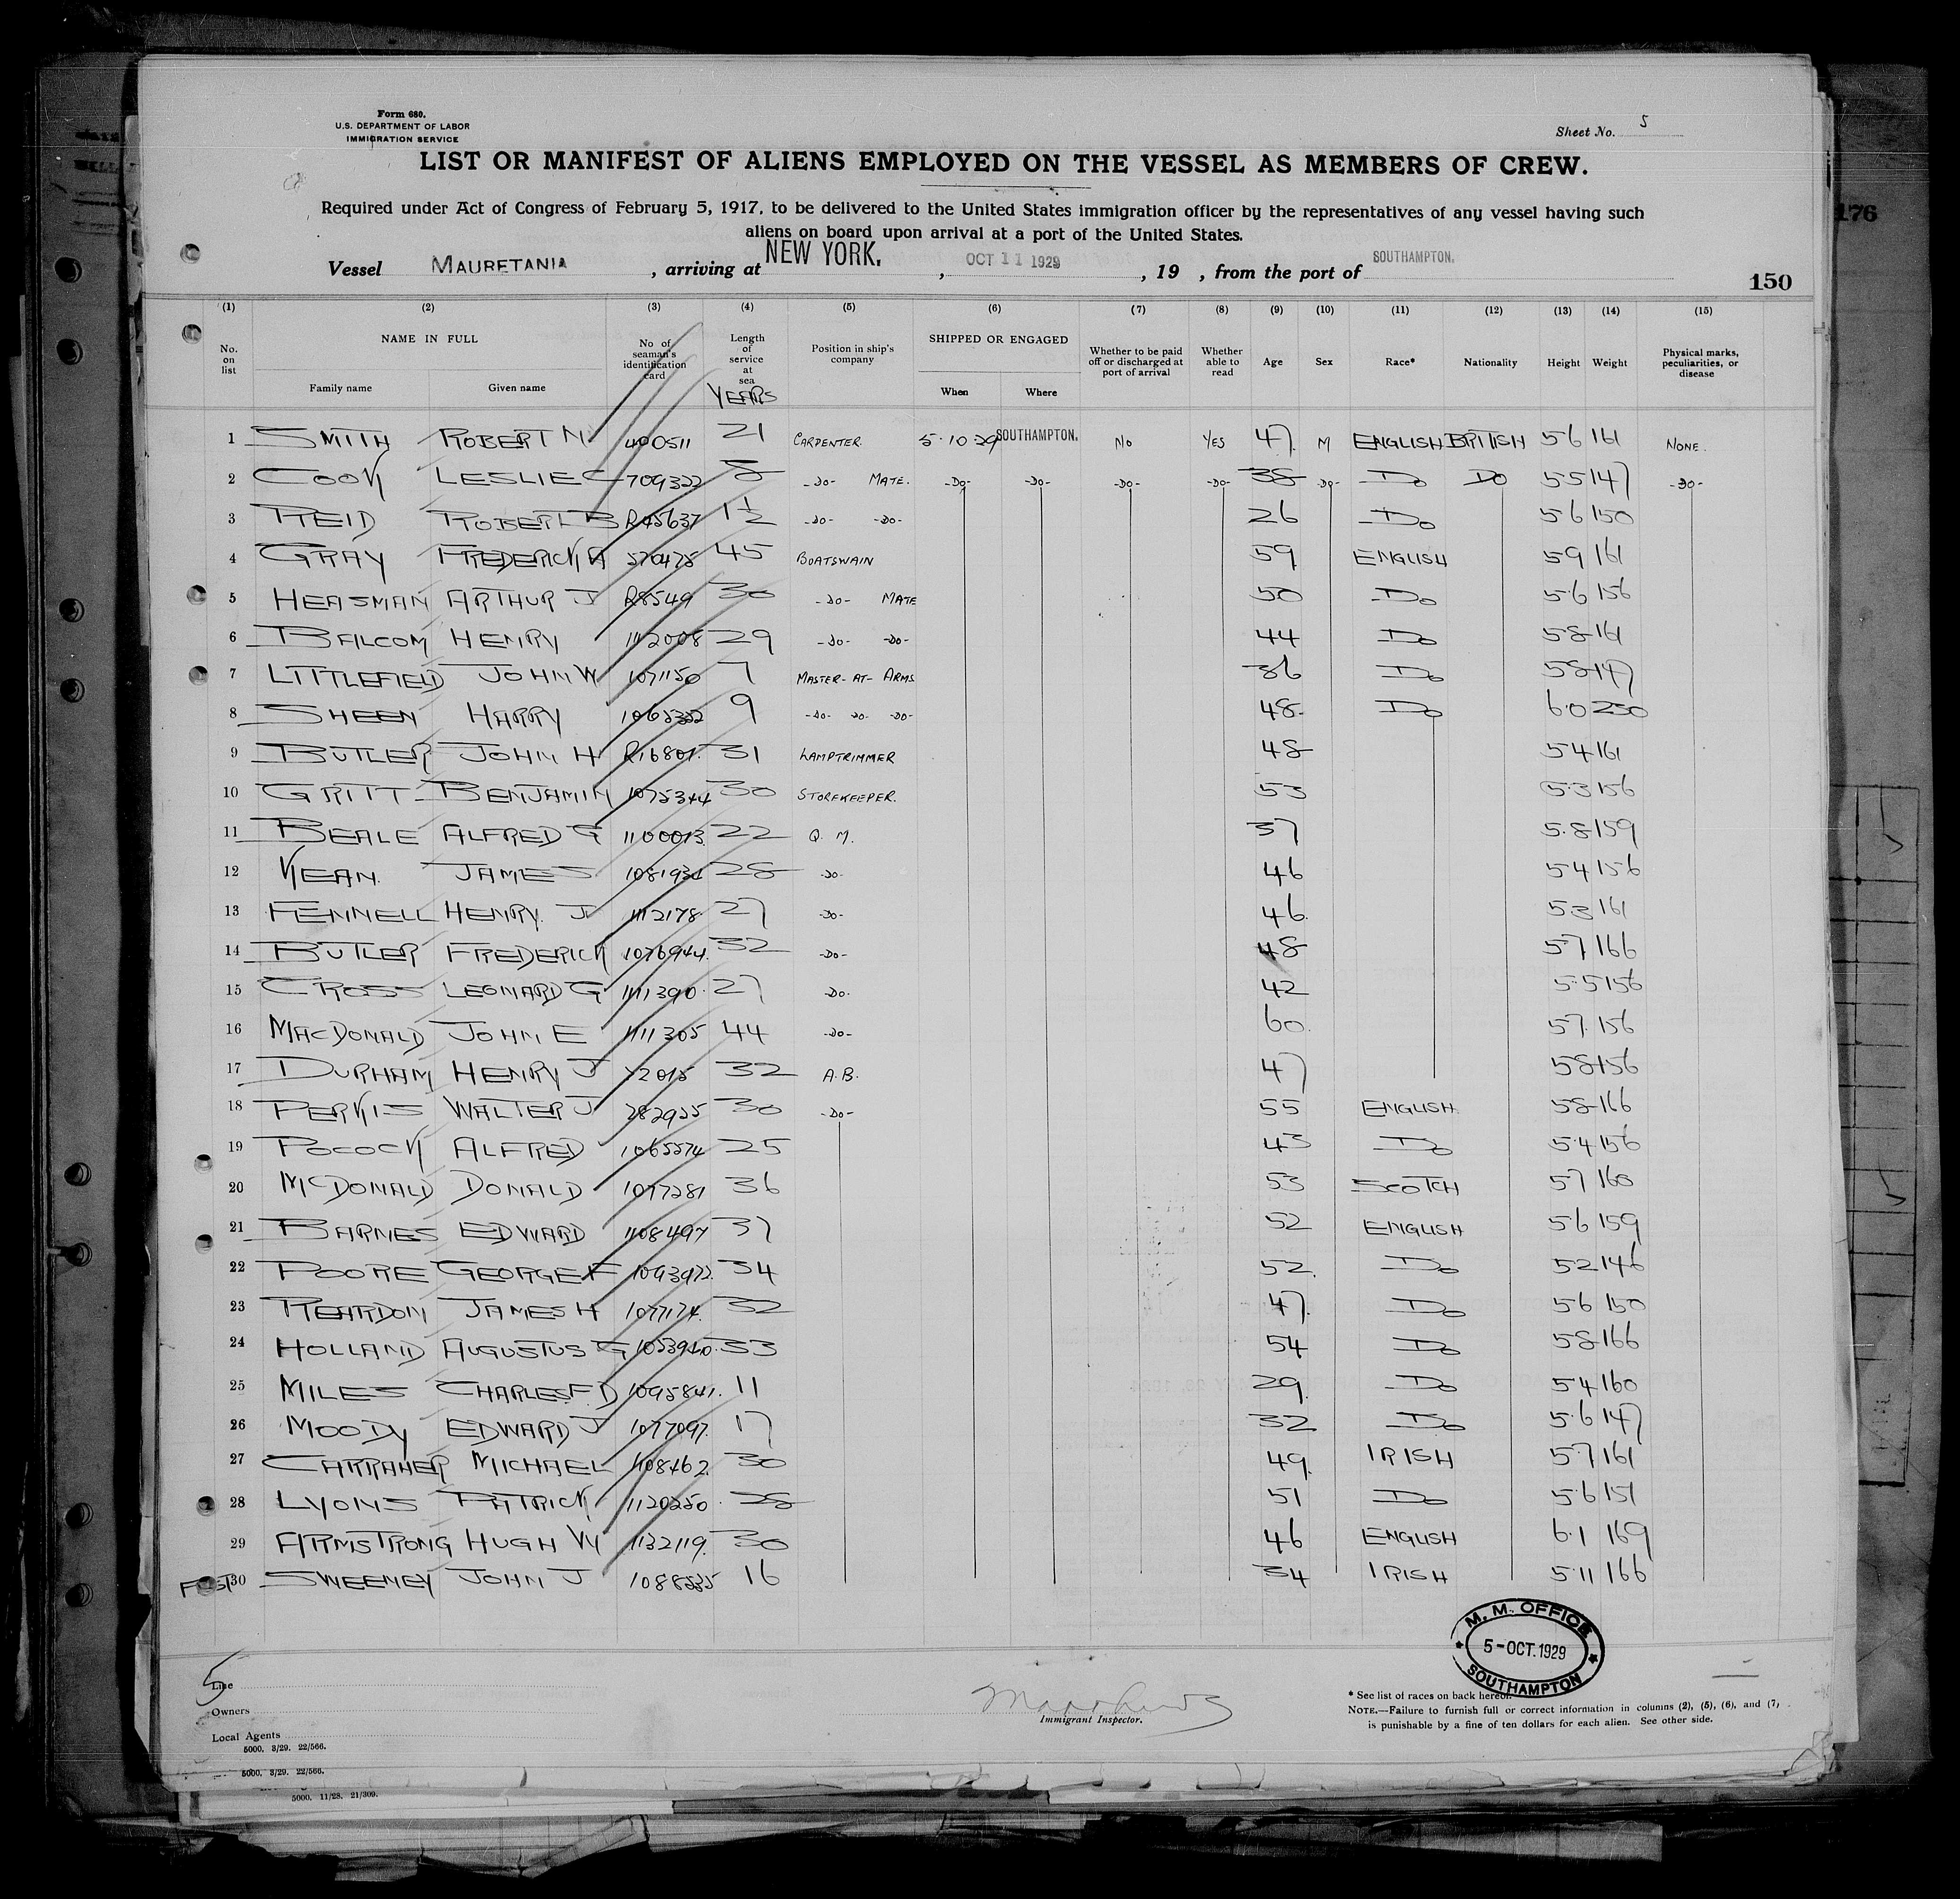 Form 680.
U.S. DEPARTMENT OF LABOR
IMMIGRATION SERVICE
Sheet No. 5
LIST OR MANIFEST OF ALIENS EMPLOYED ON THE VESSEL AS MEMBERS OF CREW.
Required under Act of Congress of February 5, 1917, to be delivered to the United States immigration officer by the representatives of any vessel having such
aliens on board upon arrival at a port of the United States.
Vessel MAURETANIA, arriving at NEW YORK, OCT 11 1929, 19 , from the port of SOUTHAMPTON.
176
150
(1) (2) (3) (4) (5) (6) (7) (8) (9) (10) (11) (12) (13) (14) (15)
No. on list NAME IN FULL Family name Given name No of seaman's identification card Length of service at sea YEARS Position in ship's company SHIPPED OR ENGAGED When Where Whether to be paid off or discharged at port of arrival Whether able to read Age Sex Race* Nationality Height Weight Physical marks, peculiarities, or disease
1 SMITH ROBERT N 400511 21 CARPENTER. 5.10.29 SOUTHAMPTON. NO YES 47 M ENGLISH BRITISH 5 6 161 NONE.
2 COOK LESLIE C 709322 8 -DO- MATE. -DO- -DO- -DO- -DO- 38 -DO- DO DO 5 5 147 -DO-
3 REID ROBERT B R45637 1½ -DO- -DO- 26 DO 5 6 150
4 GRAY FREDERICK A 570475 45 BOATSWAIN 59 ENGLISH 5 9 161
5 HEASMAN ARTHUR J R8549 30 -DO- MATE 50 DO 5.6 156
6 BALCOM HENRY 1112008 29 -DO- -DO- 44 DO 5 8 161
7 LITTLEFIELD JOHN W 1071150 7 MASTER-AT-ARMS 36 DO 5 8 147
8 SHEEN HARRY 9 -DO- DO- -DO- 48 DO 6.0 230
9 BUTLER JOHN H R16801. 31 LAMPTRIMMER 48 5 4 161
10 GRITT BENJAMIN 1075344 30 STOREKEEPER. 53 5.3 156
11 BEALE ALFRED G 1100013 22 Q. M. 37 5.8 159
12 KEAN. JAMES 1081934 28 -DO- 46 5 4 156
13 FENNELL HENRY. J 1112178 27 -DO- 46 5.3 161
14 BUTLER FREDERICK 1076944. 32 -DO- 48 5.7 166
15 CROSS LEONARD G 1111390. 27 -DO. 42 5.5 156
16 MACDONALD JOHN E 1111305 44 -DO- 60. 5 7. 156
17 DURHAM HENRY J 32 A.B. 47 5 8 156
18 PERKIS WALTER J 282955 30 -DO- 55 ENGLISH. 5 8 166
19 POCOCK ALFRED 1065574 25 43 DO 5.4 156
20 MCDONALD DONALD 1077281 36 53 SCOTCH 5 7 160
21 BARNES EDWARD 1108497 37 52 ENGLISH 5 6 159
22 POORE GEORGE F 1093972. 34 52. DO 5 2 146
23 REARDON JAMES H 1077174. 32 47. DO 5 6 150
24 HOLLAND AUGUSTUS G 1053940. 33 54 DO 5 8 166
25 MILES CHARLES F D 1095841. 11 29. DO 5 4 160
26 MOODY EDWARD J 1077097. 17 32 DO 5.6 147
27 CARRAHER MICHAEL 1108462. 30 49. IRISH 5.7 161
28 LYONS PATRICK 1120250. 28 51 DO 5.6 151
29 ARMSTRONG HUGH W 1132119. 30 46 ENGLISH 6.1 169
30 SWEENEY JOHN J 1088535 16 34 IRISH 5.11 166
M. M. OFFICE
5-OCT.1929
SOUTHAMPTON
5
Line
Owners
Local Agents
5000. 3/29. 22/566.
5000. 3/29. 22/566.
5000. 11/28. 21/309.
Immigrant Inspector.
* See list of races on back hereof.
NOTE.—Failure to furnish full or correct information in columns (2), (5), (6), and (7)
is punishable by a fine of ten dollars for each alien. See other side.